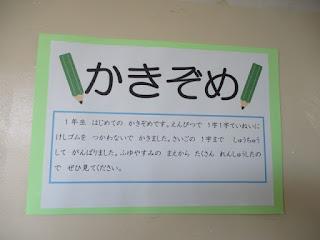 かきぞめ
1年生 はじめての かきぞめです。えんぴつで 1字1字ていねいに
けしゴムを つかわないで かきました。さいごの 1字まで しゅうちゅう
して がんばりました。ふゆやすみの まえから たくさん れんしゅうしたの
で ぜひ見てください。